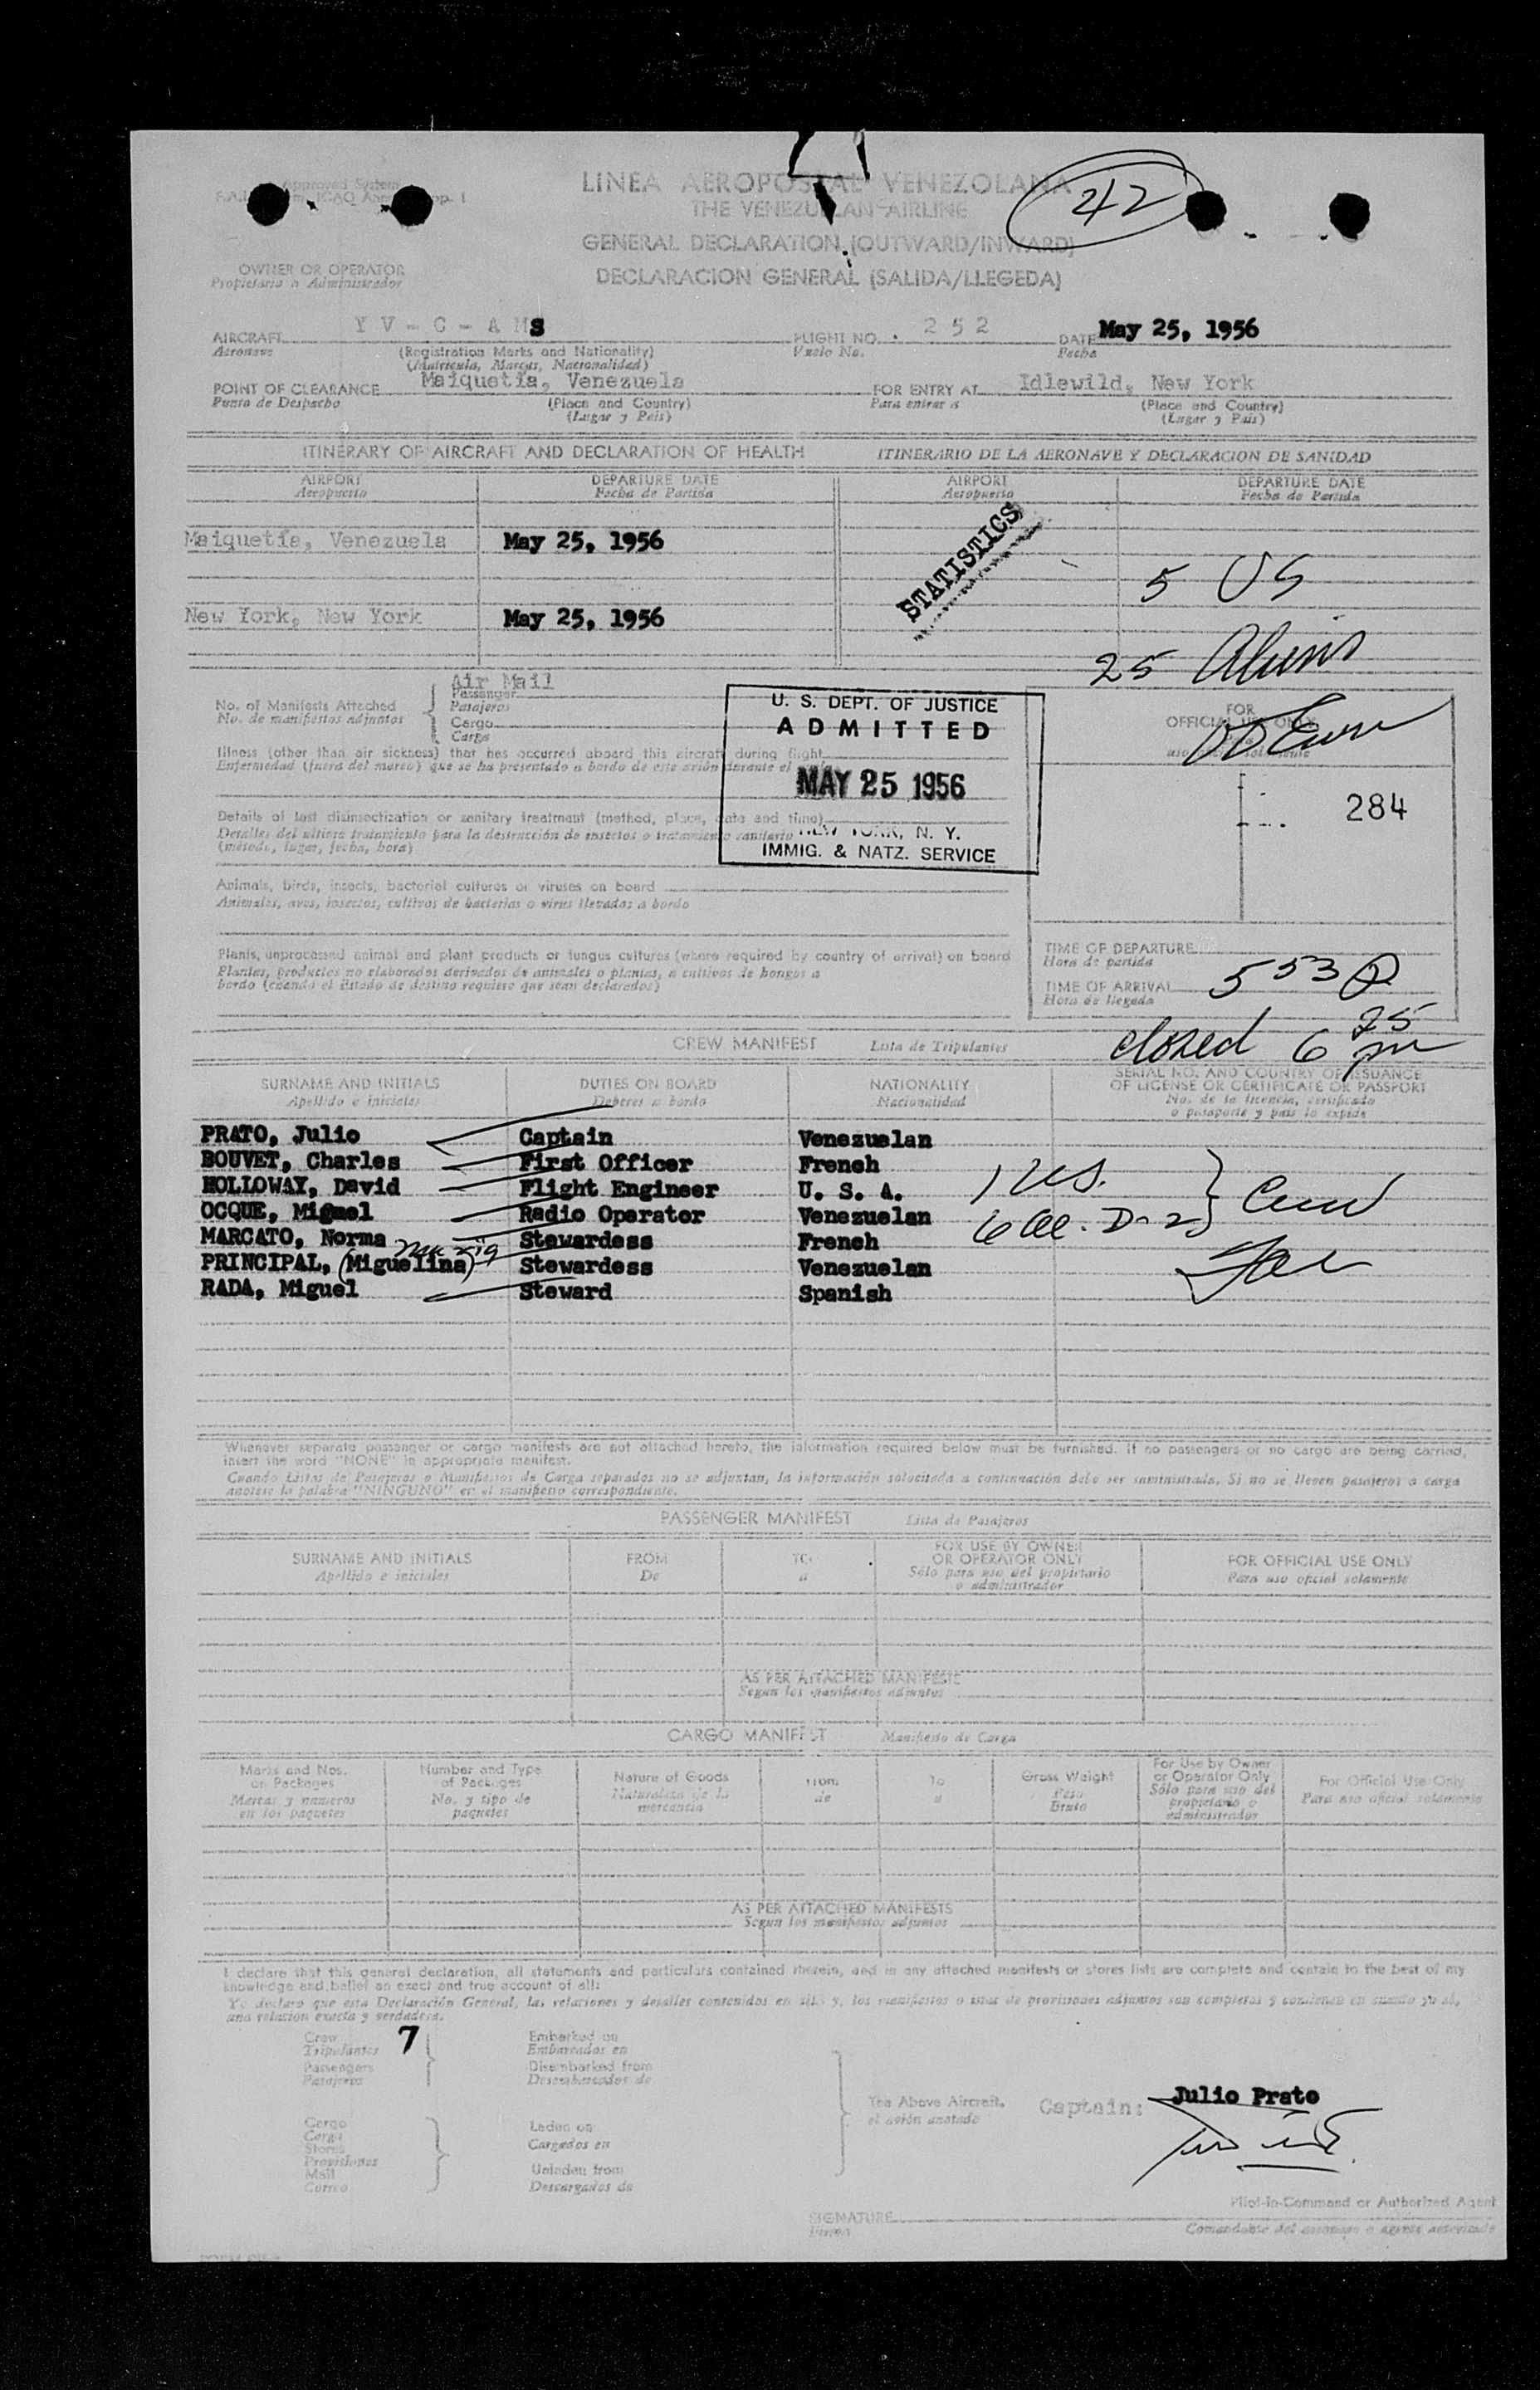 Approved System
LINEA AEROPOSTAL VENEZOLANA
42
THE VENEZUELAN AIRLINE
GENERAL DECLARATION (OUTWARD/INWARD)
DECLARACION GENERAL (SALIDA/LLEGEDA)
OWNER OR OPERATOR
Propietario o Administrador
AIRCRAFT YV-C-AMS FLIGHT NO. 252 DATE May 25, 1956
Aeronave (Registration Marks and Nationality) Vuelo No. Fecha
(Matricula, Marcas, Nacionalidad)
POINT OF CLEARANCE Maiquetía, Venezuela FOR ENTRY AT Idlewild, New York
Punto de Despacho (Place and Country) Para entrar a (Place and Country)
(Lugar y Pais) (Lugar y Pais)
ITINERARY OF AIRCRAFT AND DECLARATION OF HEALTH ITINERARIO DE LA AERONAVE Y DECLARACION DE SANIDAD
AIRPORT DEPARTURE DATE AIRPORT DEPARTURE DATE
Aeropuerto Fecha de Partida Aeropuerto Fecha de Partida
Maiquetía, Venezuela May 25, 1956
STATISTICS
5 US
New York, New York May 25, 1956
25 Aliens
Air Mail
No. of Manifests Attached Passenger
No. de manifiestos adjuntos Pasajeros
Cargo
Carga
U. S. DEPT. OF JUSTICE
ADMITTED
MAY 25 1956
NEW YORK, N. Y.
IMMIG. & NATZ. SERVICE
FOR
OFFICIAL USE ONLY
284
Illness (other than air sickness) that has occurred aboard this aircraft during flight
Enfermedad (fuera del mareo) que se ha presentado a bordo de este avión durante el
Details of last disinsectization or sanitary treatment (method, place, date and time)
Detalles del último tratamiento para la destrucción de insectos o tratamiento sanitario
(método, lugar, fecha, hora)
Animals, birds, insects, bacterial cultures or viruses on board
Animales, aves, insectos, cultivos de bacterias o virus llevados a bordo
Plants, unprocessed animal and plant products or fungus cultures (where required by country of arrival) on board
Plantas, productos no elaborados derivados de animales o plantas, o cultivos de hongos a
bordo (cuando el Estado de destino requiere que sean declarados)
TIME OF DEPARTURE
Hora de partida
TIME OF ARRIVAL 553 P
Hora de llegada
closed 6 25 pm
CREW MANIFEST Lista de Tripulantes
SURNAME AND INITIALS DUTIES ON BOARD NATIONALITY SERIAL NO. AND COUNTRY OF ISSUANCE
OF LICENSE OR CERTIFICATE OR PASSPORT
Apellido e iniciales Deberes a bordo Nacionalidad No. de la licencia, certificado
o pasaporte y pais lo expide
PRATO, Julio Captain Venezuelan
BOUVET, Charles First Officer French
HOLLOWAY, David Flight Engineer U. S. A. 1 US.
OCQUE, Miguel Radio Operator Venezuelan 6 al. D-2 Crew
MARCATO, Norma Stewardess French
PRINCIPAL, (Miguelina) Stewardess Venezuelan
RADA, Miguel Steward Spanish
Whenever separate passenger or cargo manifests are not attached hereto, the information required below must be furnished. If no passengers or no cargo are being carried,
insert the word "NONE" in appropriate manifest.
Cuando Listas de Pasajeros o Manifiestos de Carga separados no se adjuntan, la información solicitada a continuación debe ser suministrada. Si no se llevan pasajeros o carga
anotese la palabra "NINGUNO" en el manifiesto correspondiente.
PASSENGER MANIFEST Lista de Pasajeros
SURNAME AND INITIALS FROM TO FOR USE BY OWNER
OR OPERATOR ONLY FOR OFFICIAL USE ONLY
Apellido e iniciales De a Sólo para uso del propietario
o administrador Para uso oficial solamente
AS PER ATTACHED MANIFESTS
Segun los manifiestos adjuntos
CARGO MANIFEST Manifiesto de Carga
Marks and Nos.
on Packages
Marcas y numeros
en los paquetes
Number and Type
of Packages
No. y tipo de
paquetes
Nature of Goods
Naturaleza de la
mercancia
From
de
To
a
Gross Weight
Peso
Bruto
For Use by Owner
or Operator Only
Sólo para uso del
propietario o
administrador
For Official Use Only
Para uso oficial solamente
AS PER ATTACHED MANIFESTS
Segun los manifiestos adjuntos
I declare that this general declaration, all statements and particulars contained therein, and in any attached manifests or stores lists are complete and contain to the best of my
knowledge and belief an exact and true account of all:
Yo declaro que esta Declaración General, las relaciones y detalles contenidos en
una relación exacta y verdadera.
Crew 7 Embarked on
Tripulantes Embarcados en
Passengers Disembarked from
Pasajeros Desembarcados de
The Above Aircraft.
el avión anotado
Captain: Julio Prato
Cargo Laden on
Carga Cargados en
Stores
Provisiones
Mail Unladen from
Correo Descargados de
Pilot-in-Command or Authorized Agent
SIGNATURE
Firma Comandante del aeronave o agente autorizado